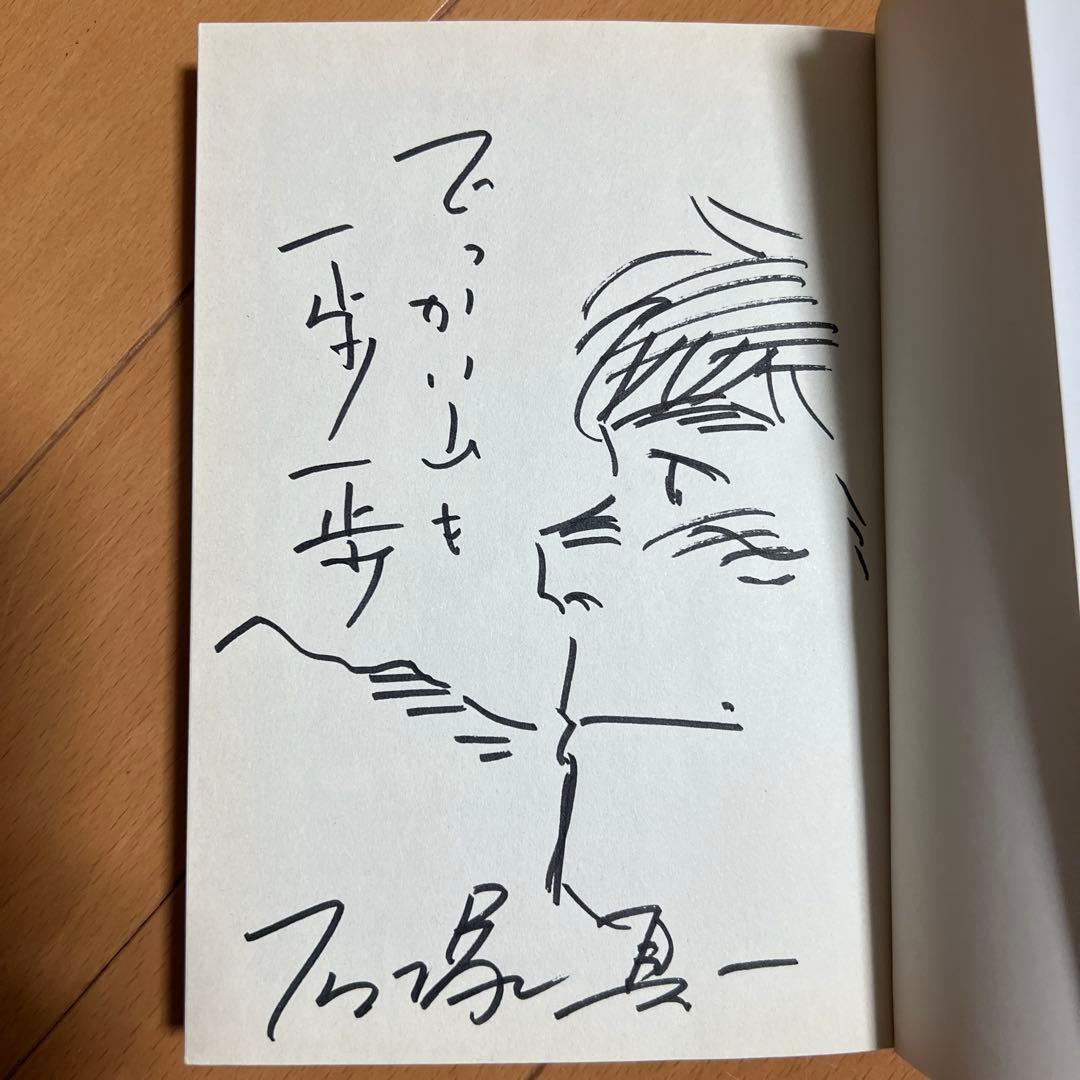 でっかい山も
一歩一歩
石塚真一